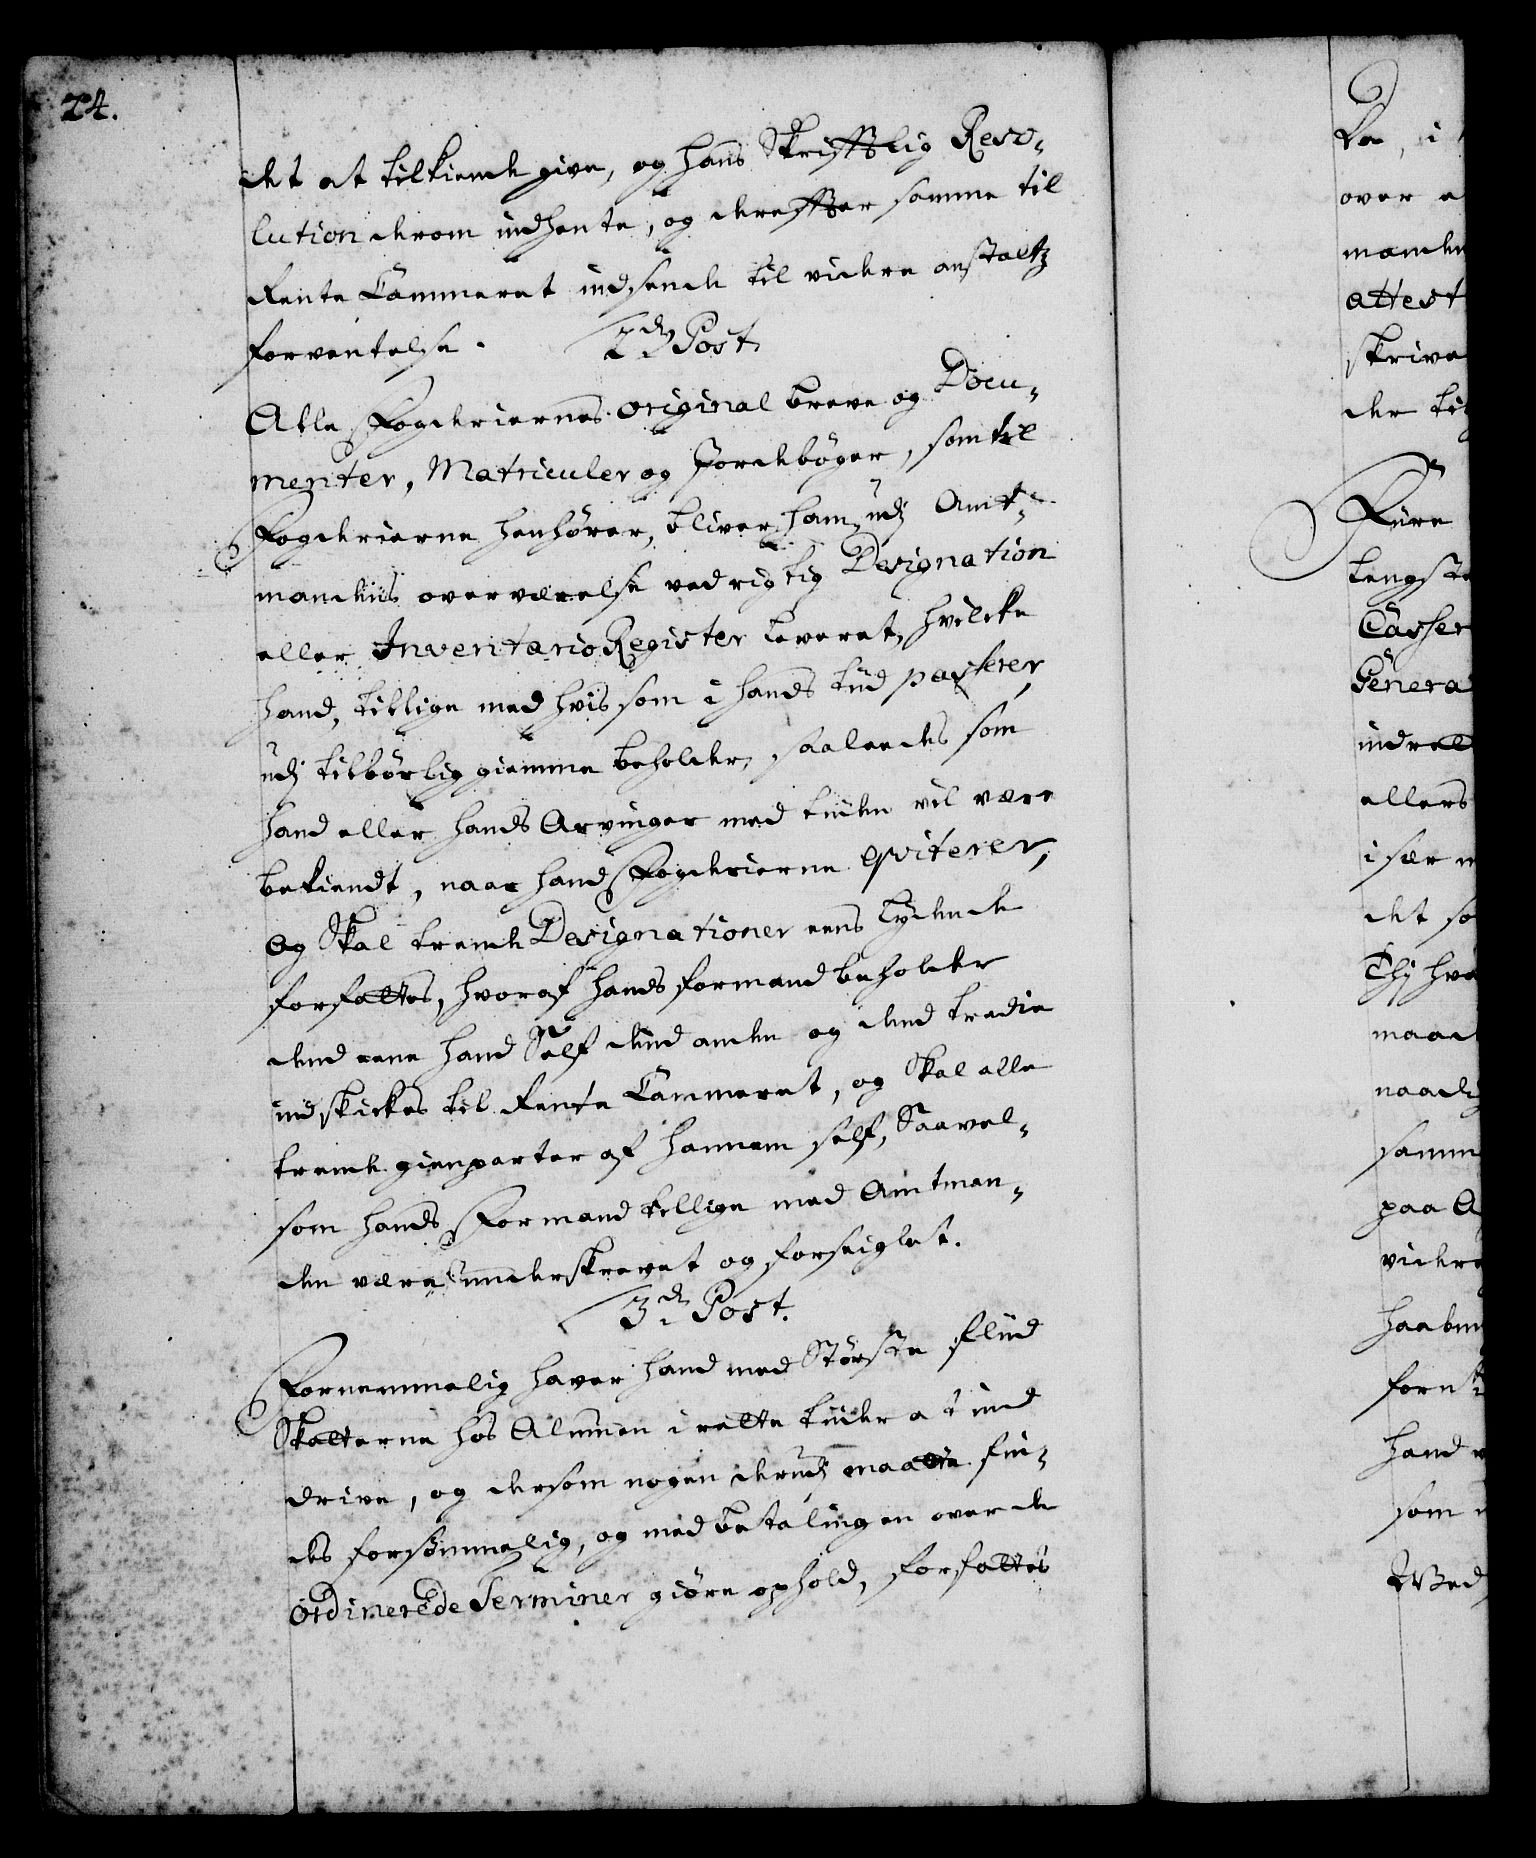 24.
det at tilkiende give, og hans Skrifftlig Reso-
lution derom indhente, og dereffter samme til
Rente Cammeret indsende til videre anstaltz
forventelse.
2den Post
Alle Fogderiernes original breve og Docu-
menter, Matriculer og Jordebøger, som til
Fogderierne henhører, bliver ham udj Amt-
mandens overværelse ved rigtig Designation
eller Inventario Register leveret, hvilcke
hand, tillige med hvis som i hands tiid passerer,
udj tilbørlig giemme beholder, saaledes som
hand eller hands Arvinger med tiiden vil være
bekiendt, naar hand Fogderierne qviterer,
og Skal trende Designationer eens lydende
forfattes, hvoraf hands formand beholder
dend eene hand Self dend anden og dend tredie
indskickes til Rente Cammeret, og Skal alle
trende gienparter af hannem self, Saavel-
som hands Formand tillige med Amtman-
den være underskrevet og forseiglet.
3die Post.
Fornemmelig haver hand med Største fliid
Skatterne hos Almuen i rette tiider at ind
drive, og dersom nogen derudj maatte fin-
des forsømmelig, og med betalingen over de
ordinerede Terminer giøre ophold, forfattes
Da, i
over
manden
attest
skrive
der til
Fiire
lengste
Casser
Genera
ind
ellers
i sær
det so
Thj hva
maad
naad
samm
paa A
videre
haabn
forn
hand
som
Wed